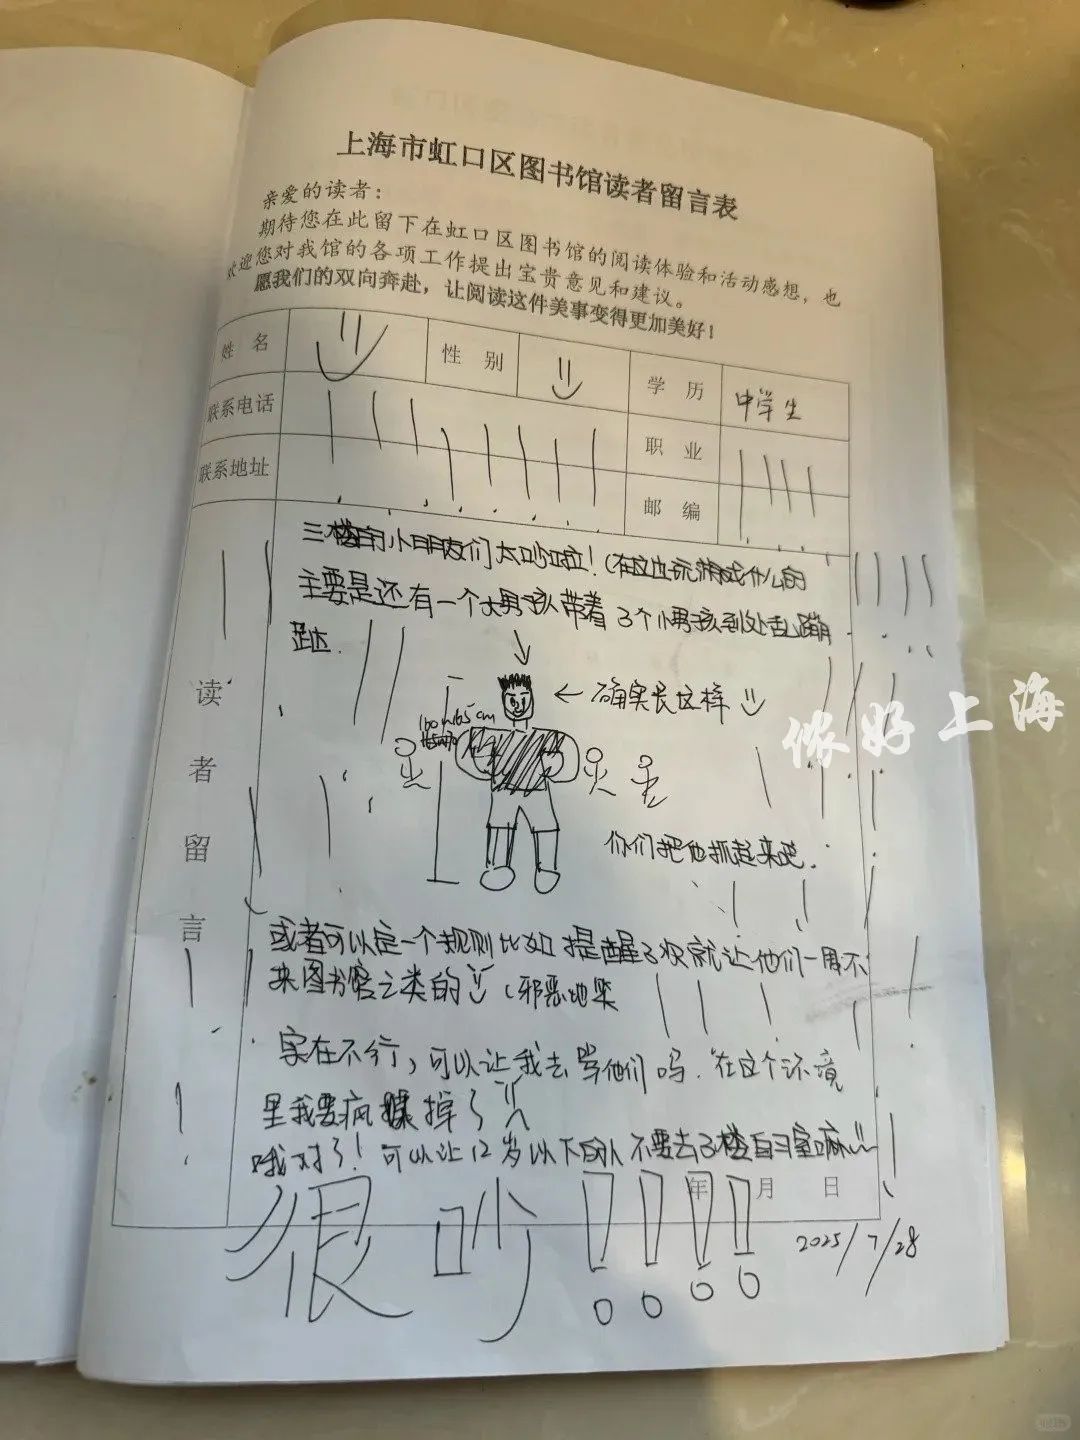 上海市虹口区图书馆读者留言表
亲爱的读者：
期待您在此留下在虹口区图书馆的阅读体验和活动感想，也
欢迎您对我馆的各项工作提出宝贵意见和建议。
愿我们的双向奔赴，让阅读这件美事变得更加美好！
姓 名
性 别
学 历 中学生
联系电话
职 业
联系地址
邮 编
读者留言
三楼的小朋友们太吵啦！(在这边玩游戏什么的
主要是还有一个大男孩带着3个小男孩到处乱蹦
跶.
← 确实长这样
160~165cm
侬好上海
你们把他抓起来吧.
或者可以定一个规则比如提醒3次就让他们一周不
来图书馆之类的 (邪恶地笑
实在不行，可以让我去骂他们吗.在这个环境
里我要疯掉了
哦对了！可以让12岁以下的人不要去3楼自习室嘛
年 月 日
很吵！！！！
2025/7/28